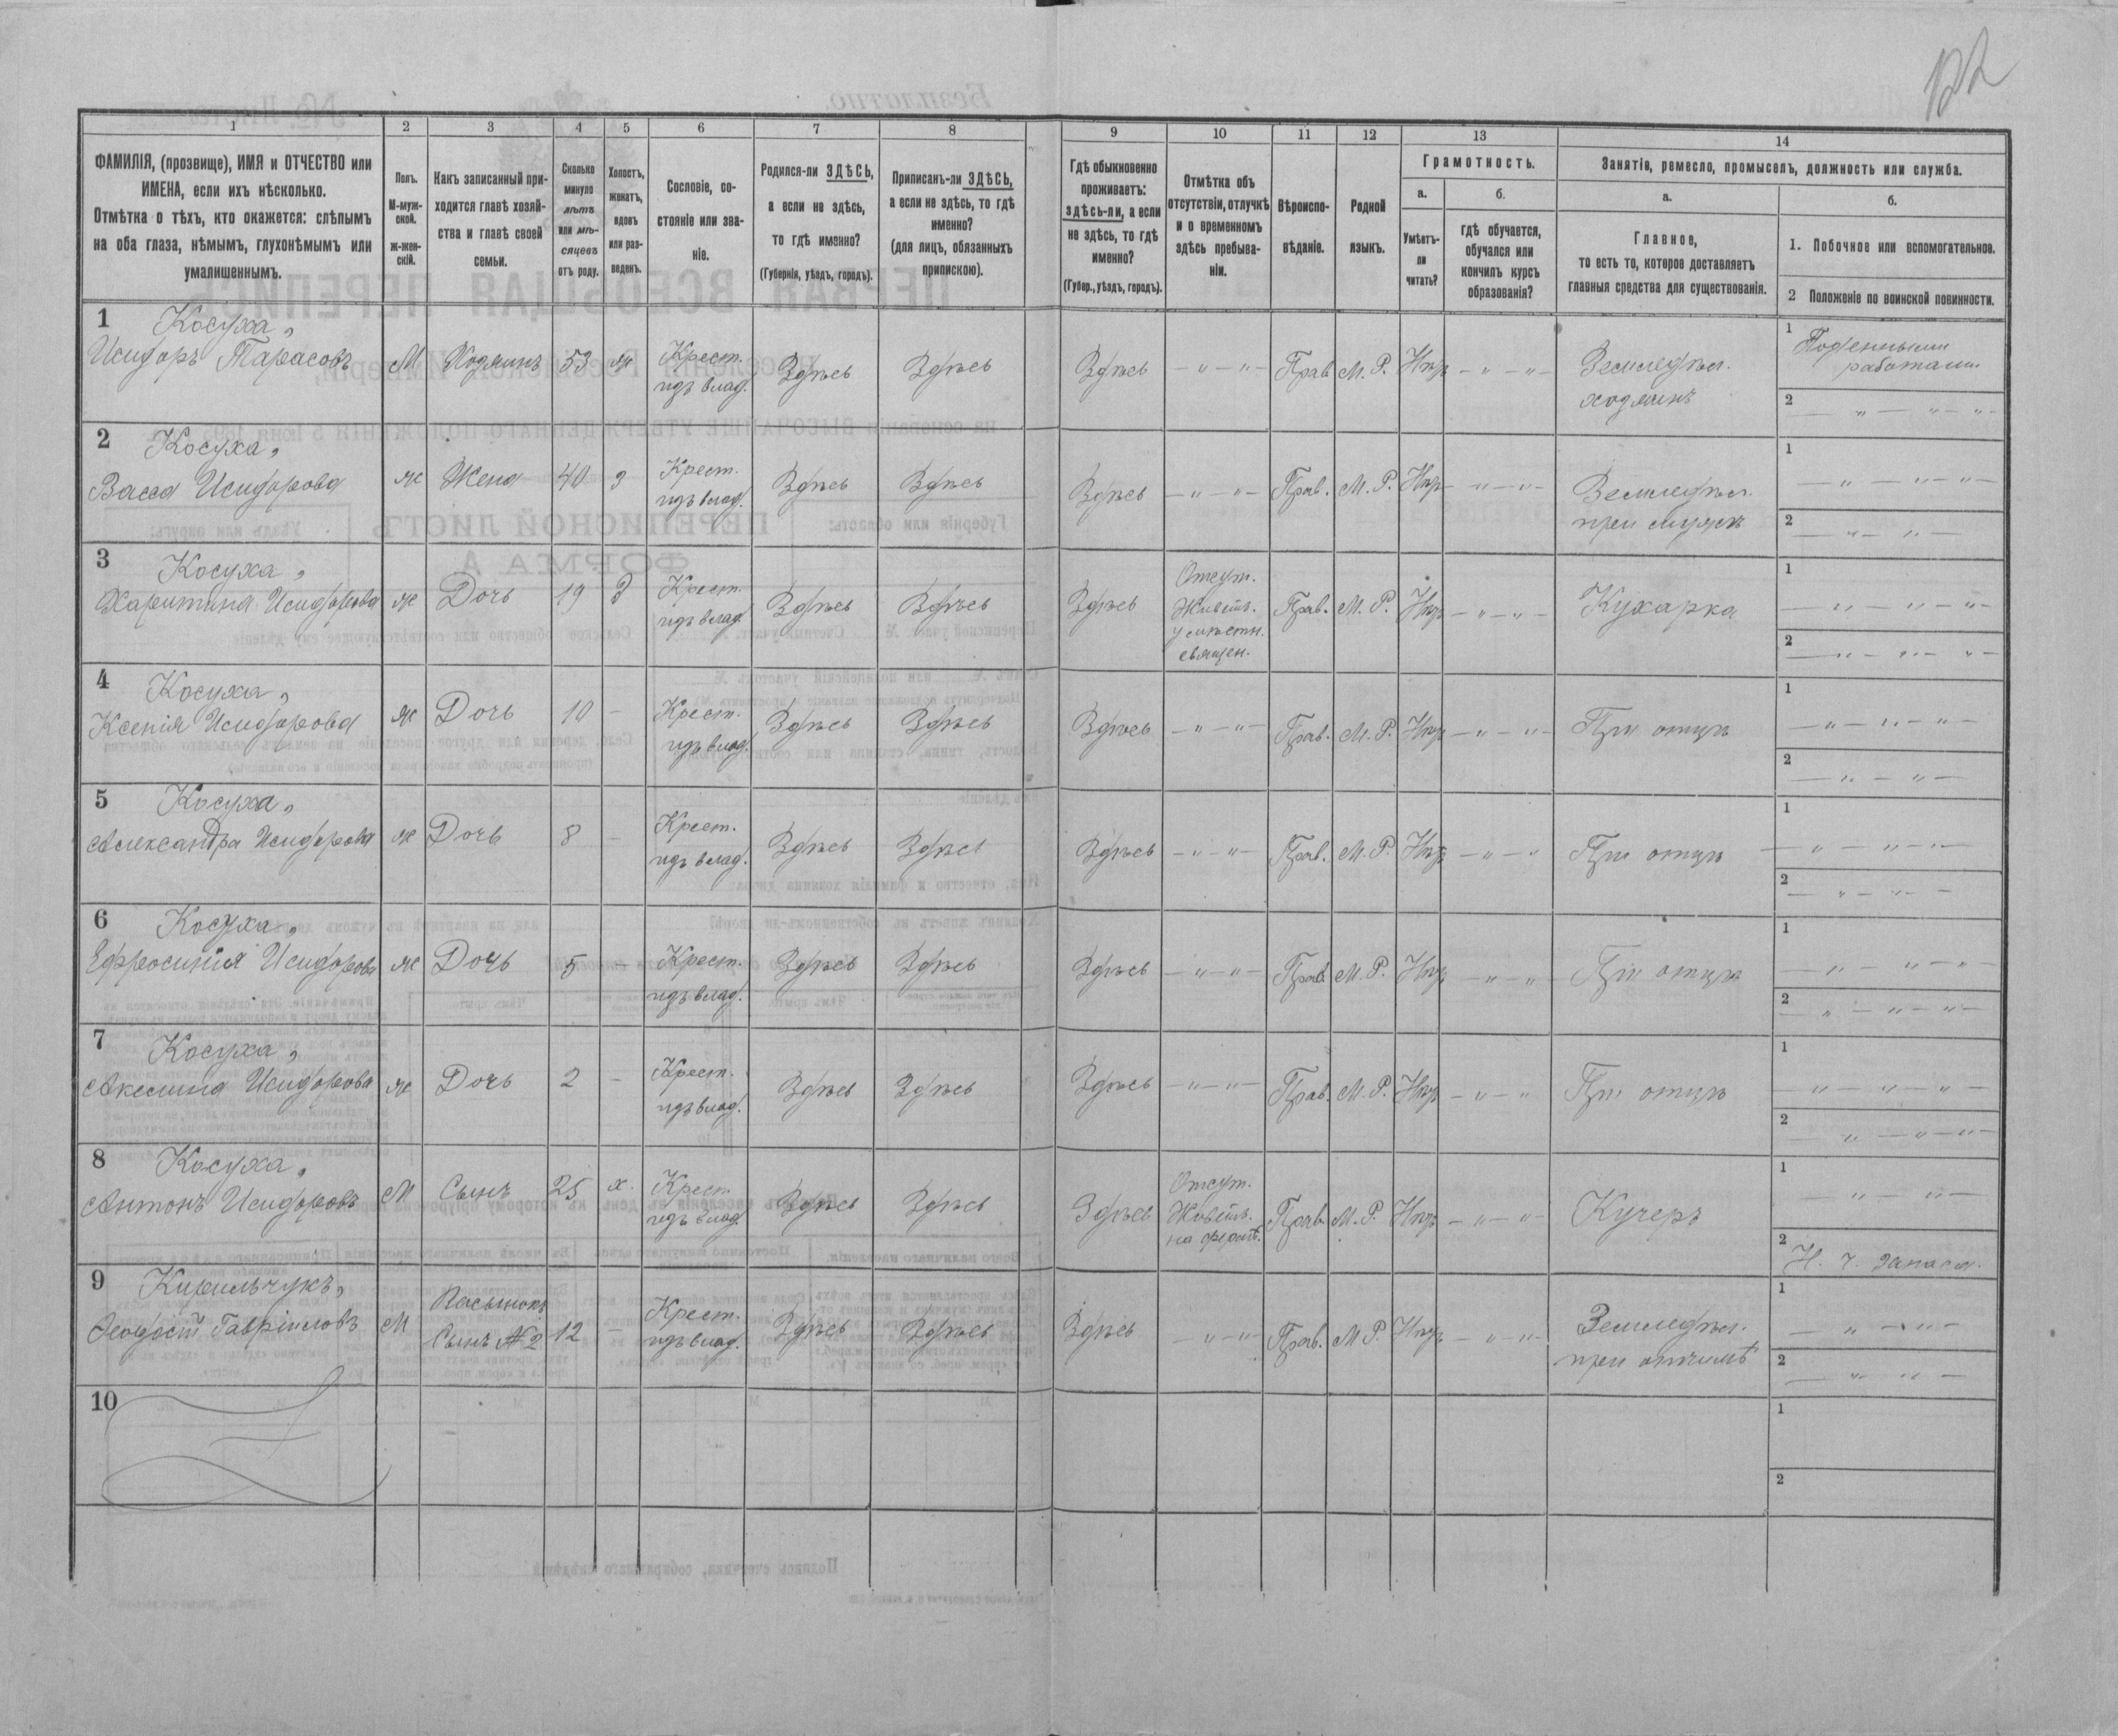 122
1
2
3
4
5
6
7
8
9
10
11
12
13
14
ФАМИЛІЯ, (прозвище), ИМЯ и ОТЧЕСТВО или
ИМЕНА, если ихъ нѣсколько.
Отмѣтка о тѣхъ, кто окажется: слѣпымъ
на оба глаза, нѣмымъ, глухонѣмымъ или
умалишеннымъ.
Полъ.
М-муж-
ской.
ж-жен-
скій.
Какъ записанный при-
ходится главѣ хозяй-
ства и главѣ своей
семьи.
Сколько
минуло
лѣтъ
или мѣ-
сяцевъ
отъ роду.
Холостъ,
женатъ,
вдовъ
или раз-
веденъ.
Сословіе, со-
стояніе или зва-
ніе.
Родился-ли ЗДѢСЬ,
а если не здѣсь,
то гдѣ именно?
(Губернія, уѣздъ, городъ).
Приписанъ-ли ЗДѢСЬ,
а если не здѣсь, то гдѣ
именно?
(для лицъ, обязанныхъ
припискою).
Гдѣ обыкновенно
проживаетъ:
здѣсь-ли, а если
не здѣсь, то гдѣ
именно?
(Губер., уѣздъ, городъ).
Отмѣтка объ
отсутствіи, отлучкѣ
и о временномъ
здѣсь пребыва-
ніи.
Вѣроиспо-
вѣданіе.
Родной
языкъ.
Грамотность.
а.
б.
Умѣетъ-
ли
читать?
гдѣ обучается,
обучался или
кончилъ курсъ
образованія?
Занятіе, ремесло, промыселъ, должность или служба.
а.
б.
Главное,
то есть то, которое доставляетъ
главныя средства для существованія.
1. Побочное или вспомогательное.
2 Положеніе по воинской повинности.
1 Косуха,
Исидоръ Тарасовъ
М Хозяинъ 53 ж Крест.
изъ влад. Здѣсь Здѣсь Здѣсь — „ — „ — Прав М. Р. Нѣтъ — „ — „ — Земледѣл.
хозяинъ
1 Поденными
работами
2 — „ — „ — „ —
2 Косуха,
Васса Исидорова
ж Жена 40 з Крест.
изъ влад. Здѣсь Здѣсь Здѣсь — „ — „ — Прав. М. Р. Нѣтъ — „ — „ — Земледѣл.
при мужѣ
1 — „ — „ — „ —
2 — „ — „ —
3 Косуха,
Харитина Исидорова
ж Дочь 19 д Крест.
изъ влад. Здѣсь Здѣсь Здѣсь Отсут.
Живетъ
у мѣстн.
священ.
Прав. М. Р. Нѣтъ — „ — „ — Кухарка
1 — „ — „ — „ —
2 — „ — „ — „ —
4 Косуха,
Ксенія Исидорова
ж Дочь 10 — Крест.
изъ влад. Здѣсь Здѣсь Здѣсь — „ — „ — Прав. М. Р. Нѣтъ — „ — „ — При отцѣ
1 — „ — „ — „ —
2 — „ — „ —
5 Косуха,
Александра Исидорова
ж Дочь 8 — Крест.
изъ влад. Здѣсь Здѣсь Здѣсь — „ — „ — Прав. М. Р. Нѣтъ — „ — „ При отцѣ
1 — „ — „ — „ —
2 — „ — „ —
6 Косуха,
Ефросинія Исидорова
ж Дочь 5 — Крест.
изъ влад. Здѣсь Здѣсь Здѣсь — „ — „ — Прав. М. Р. Нѣтъ — „ — „ При отцѣ
1 — „ — „ — „ —
2 — „ — „ — „ —
7 Косуха,
Акелина Исидорова
ж Дочь 2 — Крест.
изъ влад. Здѣсь Здѣсь Здѣсь — „ — „ — Прав. М. Р. Нѣтъ — „ — „ При отцѣ
1 — „ — „ — „ —
2 — „ — „ — „ —
8 Косуха,
Антонъ Исидоровъ
М Сынъ 25 х. Крест
изъ влад. Здѣсь Здѣсь Здѣсь Отсут.
Живетъ
на фермѣ.
Прав. М. Р. Нѣтъ — „ — „ — Кучеръ
1 — „ — „ —
2 Н. ч. запаса.
9 Кирильчукъ,
Ѳеодосій Гавріиловъ
М Пасынокъ
Сынъ № 2 12 — Крест.
изъ влад. Здѣсь Здѣсь Здѣсь — „ — „ — Прав. М Р. Нѣтъ — „ — „ — Земледѣл.
при отчимѣ
1 — „ — „ —
2 — „ — „ —
10
1
2